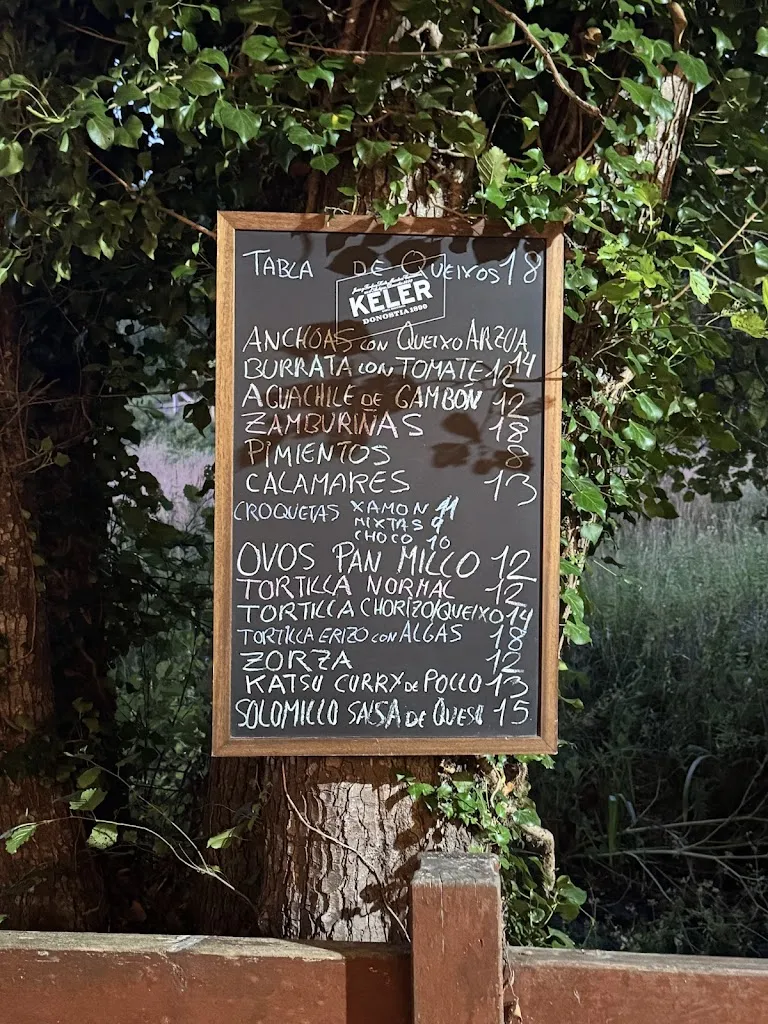 TABLA DE QUEIXOS 18
KELER
DONOSTIA 1890
ANCHOAS CON QUEIXO ARZUA
14
BURRATA CON TOMATE 12
AGUACHILE DE GAMBÓN 12
ZAMBURIÑAS 18
PIMIENTOS 8
CALAMARES 13
CROQUETAS XAMON 11
MIXTAS 9
CHOCO 10
OVOS PAN MILLO 12
TORTILLA NORMAL 12
TORTILLA CHORIZO/QUEIXO 14
TORTILLA ERIZO CON ALGAS 18
ZORZA 12
KATSU CURRY DE POLLO 13
SOLOMILLO SALSA DE QUESO 15